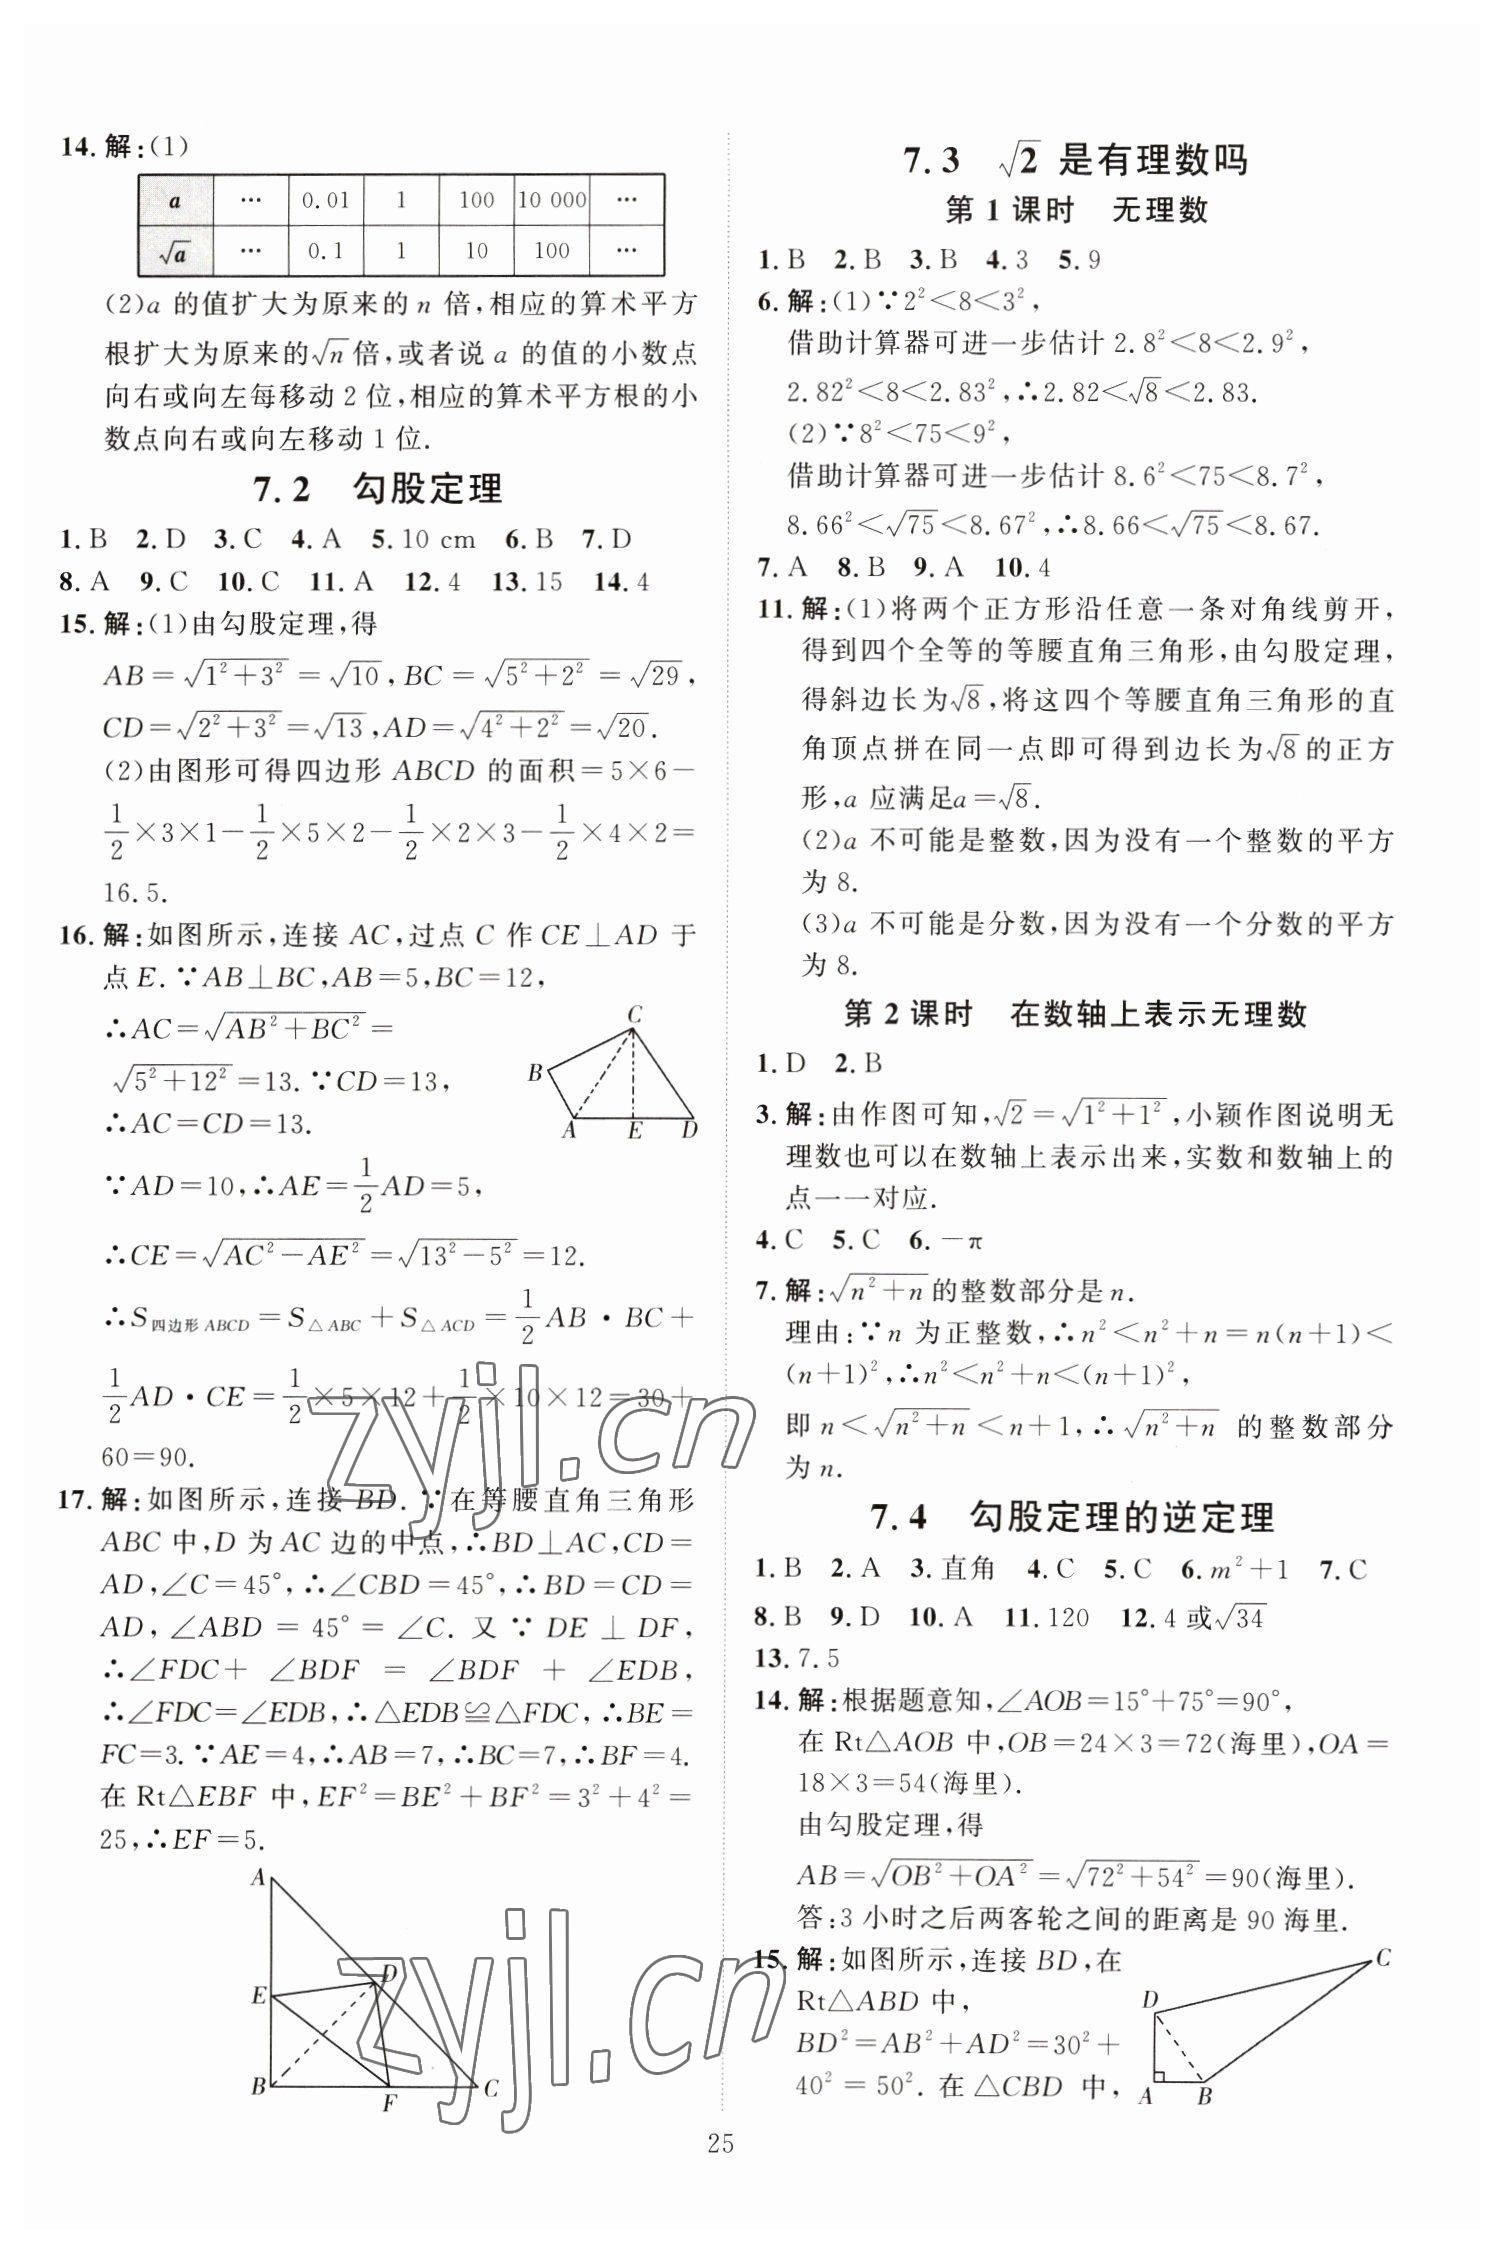 14.解:(1)
a … 0.01 1 100 10 000 …
√a … 0.1 1 10 100 …
(2)a 的值扩大为原来的 n 倍,相应的算术平方
根扩大为原来的√n倍,或者说 a 的值的小数点
向右或向左每移动 2 位,相应的算术平方根的小
数点向右或向左移动 1 位.
7.2 勾股定理
1.B 2.D 3.C 4.A 5.10 cm 6.B 7.D
8.A 9.C 10.C 11.A 12.4 13.15 14.4
15.解:(1)由勾股定理,得
AB=√(1²+3²)=√10,BC=√(5²+2²)=√29,
CD=√(2²+3²)=√13,AD=√(4²+2²)=√20.
(2)由图形可得四边形 ABCD 的面积=5×6-
1/2×3×1-1/2×5×2-1/2×2×3-1/2×4×2=
16.5.
16.解:如图所示,连接 AC,过点 C 作 CE⊥AD 于
点 E.∵AB⊥BC,AB=5,BC=12,
∴AC=√(AB²+BC²)=
√(5²+12²)=13.∵CD=13,
∴AC=CD=13.
C
B
A E D
∵AD=10,∴AE=1/2AD=5,
∴CE=√(AC²-AE²)=√(13²-5²)=12.
∴S四边形ABCD=S△ABC+S△ACD=1/2AB·BC+
1/2AD·CE=1/2×5×12+1/2×10×12=30+
60=90.
17.解:如图所示,连接 BD.∵在等腰直角三角形
ABC 中,D 为 AC 边的中点,∴BD⊥AC,CD=
AD,∠C=45°,∴∠CBD=45°,∴BD=CD=
AD,∠ABD=45°=∠C.又∵DE⊥DF,
∴∠FDC+∠BDF=∠BDF+∠EDB,
∴∠FDC=∠EDB,∴△EDB≌△FDC,∴BE=
FC=3.∵AE=4,∴AB=7,∴BC=7,∴BF=4.
在 Rt△EBF 中,EF²=BE²+BF²=3²+4²=
25,∴EF=5.
A
D
E
B F C
7.3 √2 是有理数吗
第 1 课时 无理数
1.B 2.B 3.B 4.3 5.9
6.解:(1)∵2²<8<3²,
借助计算器可进一步估计 2.8²<8<2.9²,
2.82²<8<2.83²,∴2.82<√8<2.83.
(2)∵8²<75<9²,
借助计算器可进一步估计 8.6²<75<8.7²,
8.66²<√75<8.67²,∴8.66<√75<8.67.
7.A 8.B 9.A 10.4
11.解:(1)将两个正方形沿任意一条对角线剪开,
得到四个全等的等腰直角三角形,由勾股定理,
得斜边长为√8,将这四个等腰直角三角形的直
角顶点拼在同一点即可得到边长为√8的正方
形,a 应满足a=√8.
(2)a 不可能是整数,因为没有一个整数的平方
为 8.
(3)a 不可能是分数,因为没有一个分数的平方
为 8.
第 2 课时 在数轴上表示无理数
1.D 2.B
3.解:由作图可知,√2=√(1²+1²),小颖作图说明无
理数也可以在数轴上表示出来,实数和数轴上的
点一一对应.
4.C 5.C 6.-π
7.解:√(n²+n)的整数部分是 n.
理由:∵n 为正整数,∴n²<n²+n=n(n+1)<
(n+1)²,∴n²<n²+n<(n+1)²,
即 n<√(n²+n)<n+1,∴√(n²+n) 的整数部分
为 n.
7.4 勾股定理的逆定理
1.B 2.A 3.直角 4.C 5.C 6.m²+1 7.C
8.B 9.D 10.A 11.120 12.4 或√34
13.7.5
14.解:根据题意知,∠AOB=15°+75°=90°,
在 Rt△AOB 中,OB=24×3=72(海里),OA=
18×3=54(海里).
由勾股定理,得
AB=√(OB²+OA²)=√(72²+54²)=90(海里).
答:3 小时之后两客轮之间的距离是 90 海里.
15.解:如图所示,连接 BD,在
Rt△ABD 中,
BD²=AB²+AD²=30²+
40²=50².在△CBD 中,
C
D
A B
25
zyjl.cn
zyjl.cn